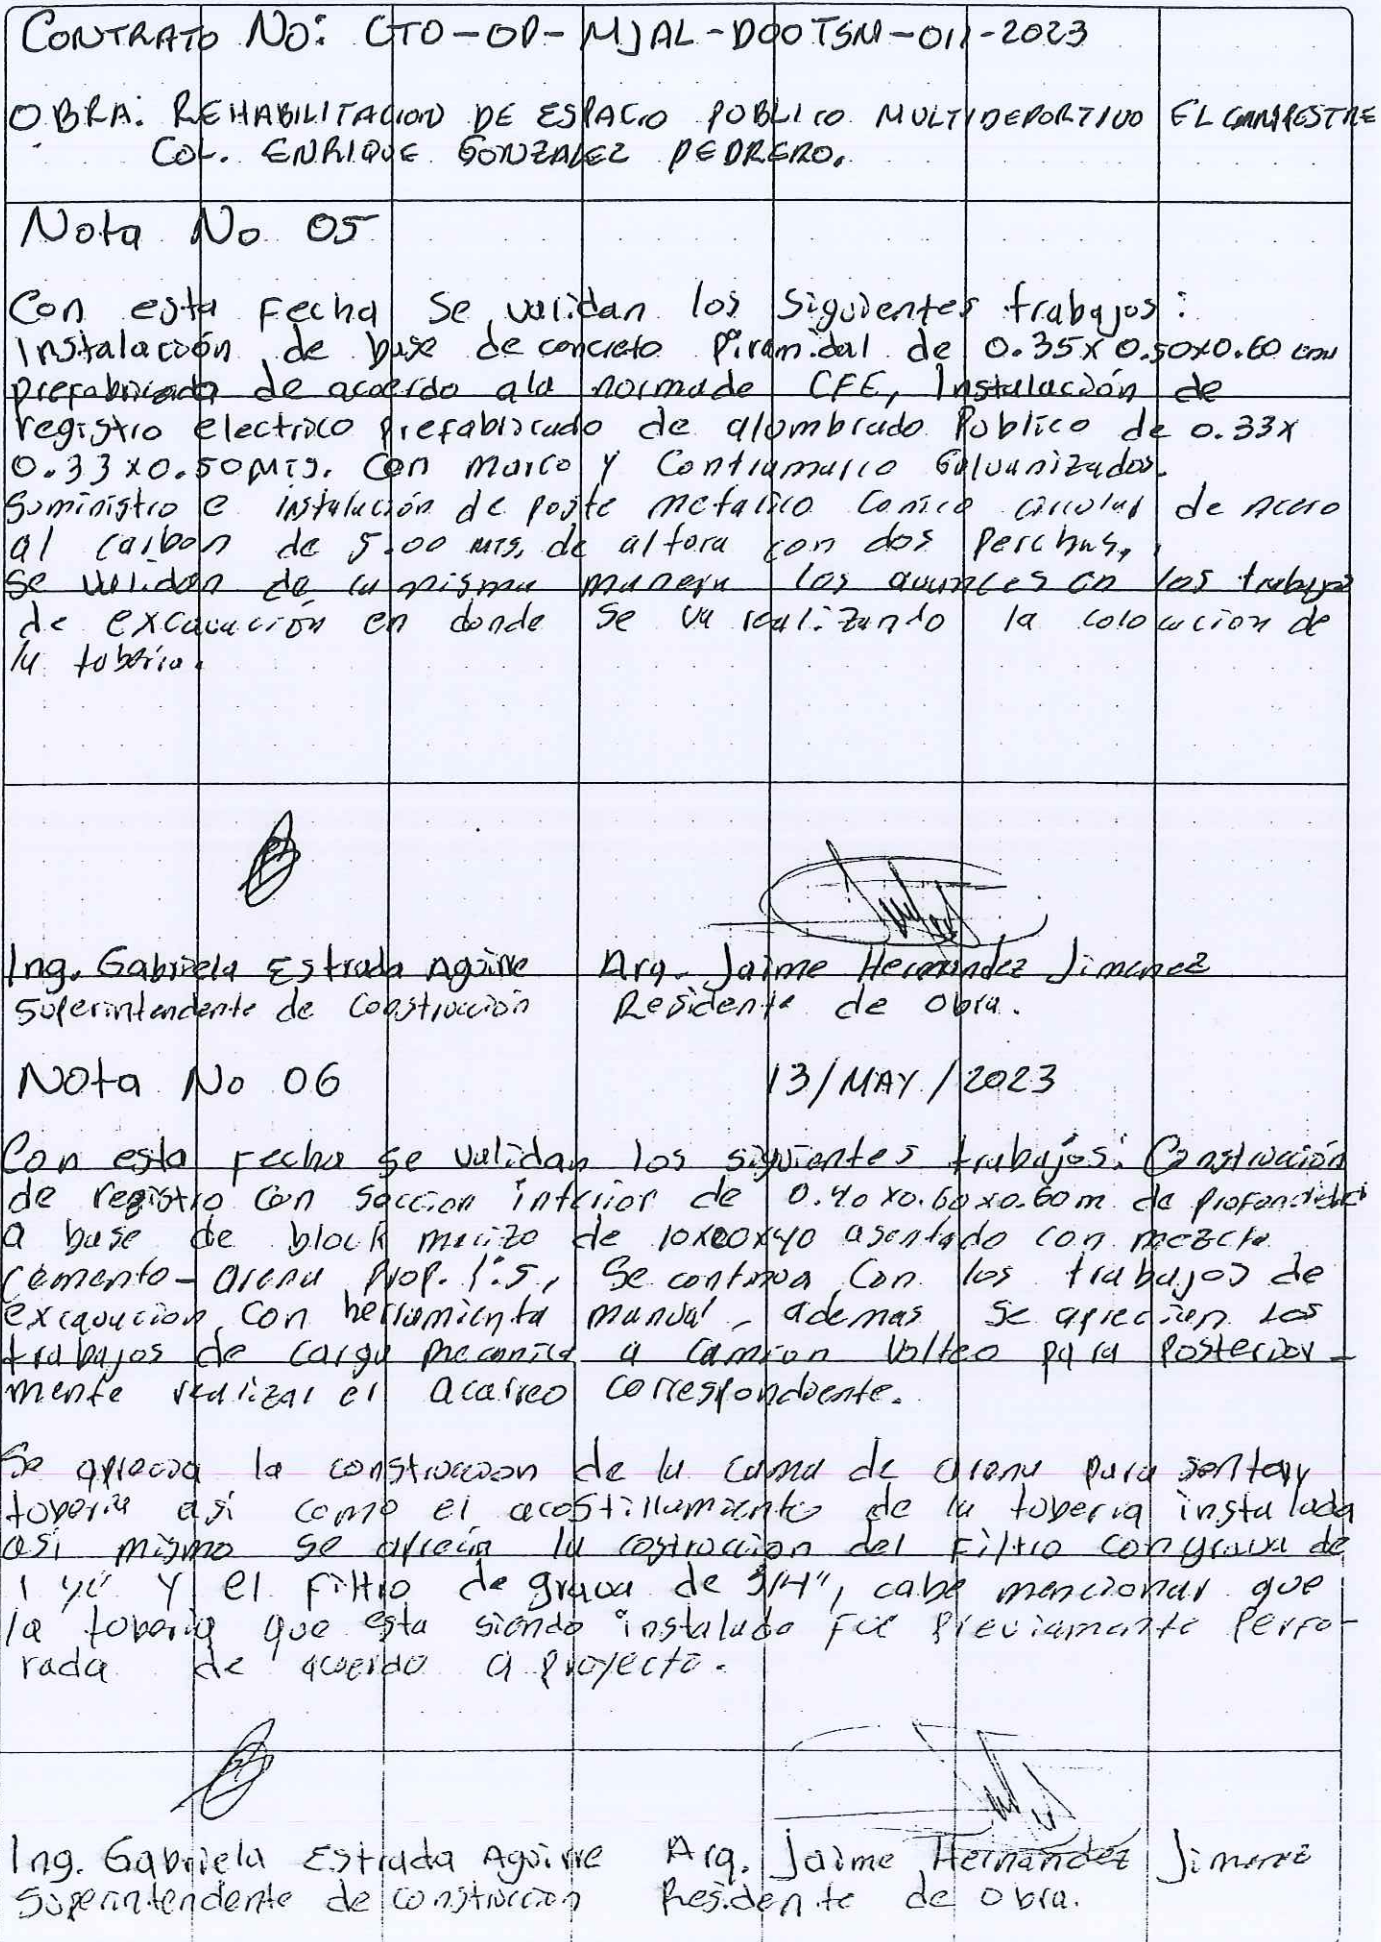 CONTRATO No: CTO-OP-MJAL-DOOTSM-011-2023
OBRA: REHABILITACION DE ESPACIO PUBLICO MULTIDEPORTIVO EL CAMPESTRE
COL. ENRIQUE GONZALEZ PEDRERO.
Nota No 05
Con esta Fecha Se validan los siguientes trabajos:
Instalación de base de concreto Piramidal de 0.35x0.50x0.60
prefabricada de acuerdo ala normade CFE, Instalación de
registro electrico prefabricado de alumbrado Publico de 0.33x
0.33x0.50 Mts. Con marco y Contramarco Galvanizados.
Suministro e instalación de poste metalico Conico circular de Acero
al carbon de 5.00 mts. de altura con dos Perchas.
Se validan de la misma manera los avances en los trabajos
de excavación en donde se va realizando la colocacion de
la tuberia.
Ing. Gabriela Estrada Aguirre Arq. Jaime Hernández Jimenez
Superintendente de Construcción Residente de Obra.
Nota No 06 13/MAY/2023
Con esta Fecha se validan los siguientes trabajos: Construcción
de registro con seccion interior de 0.40x0.60x0.60m de profundidad
a base de block macizo de 10x20x40 asentado con mezcla
cemento-arena Prop. 1:5, Se continua Con los trabajos de
excavacion con herramienta manual, ademas se aprecian Los
trabajos de carga mecanica a camion Volteo para Posterior-
mente realizar el acarreo correspondiente.
Se aprecia la construccion de la cama de arena para sentar
tuberia asi como el acostillamiento de la tuberia instalada
asi mismo se aprecia la costruccion del Filtro con grava de
1 Y el Filtro de grava de 3/4", cabe mencionar que
la tuberia que esta siendo instalada Fue Previamente Perfo-
rada de acuerdo a proyecto.
Ing. Gabriela Estrada Aguirre Arq. Jaime Hernández Jimenez
Superintendente de construccion Residente de Obra.